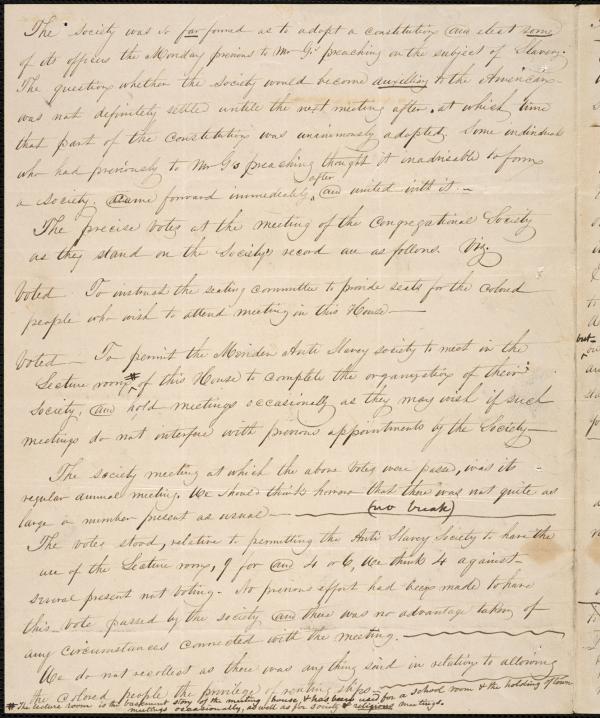 The Society was so far formed as to adopt a constitution and elect some
of its officers the Monday previous to Mr G's preaching on the subject of Slavery.
The question whether the Society would become auxiliary to the American
was not definitely settled untill the next meeting after. at which time
that part of the Constitution was unanimously adopted. Some individuals
who had previously to Mr G's preaching thought it inadvisable to form
a Society. came forward immediately after and united with it. —
The precise votes at the meeting of the Congregational Society
as they stand on the Society's record are as follows. Viz.
Voted To instruct the seating committee to provide seats for the Colored
people who wish to attend meeting in this House —
Voted — To permit the Mendon Anti Slavery society to meet in the
Lecture room # of this House to complete the organization of their
Society, and hold meetings occasionally as they may wish if such
meetings do not interfere with previous appointments by the Society —
The society meeting at which the above votes were passed, was its
regular annual meeting. We should think however that there was not quite as
large a number present as usual — (no break)
The votes stood, relative to permitting the Anti Slavery Society to have the
use of the Lecture room, 9 for and 4 or 6, We think 4 against —
several present not voting. No previous effort had been made to have
this vote passed by the society and there was no advantage taken of
any circumstances connected with the meeting.
We do not recollect as there was any thing said in relation to allowing
the colored people the privilege of renting slips —
# The lecture room is the basement story of the meeting house & has been used for a school room & the holding of town
meetings occasionally, as well as for society & religious meetings.